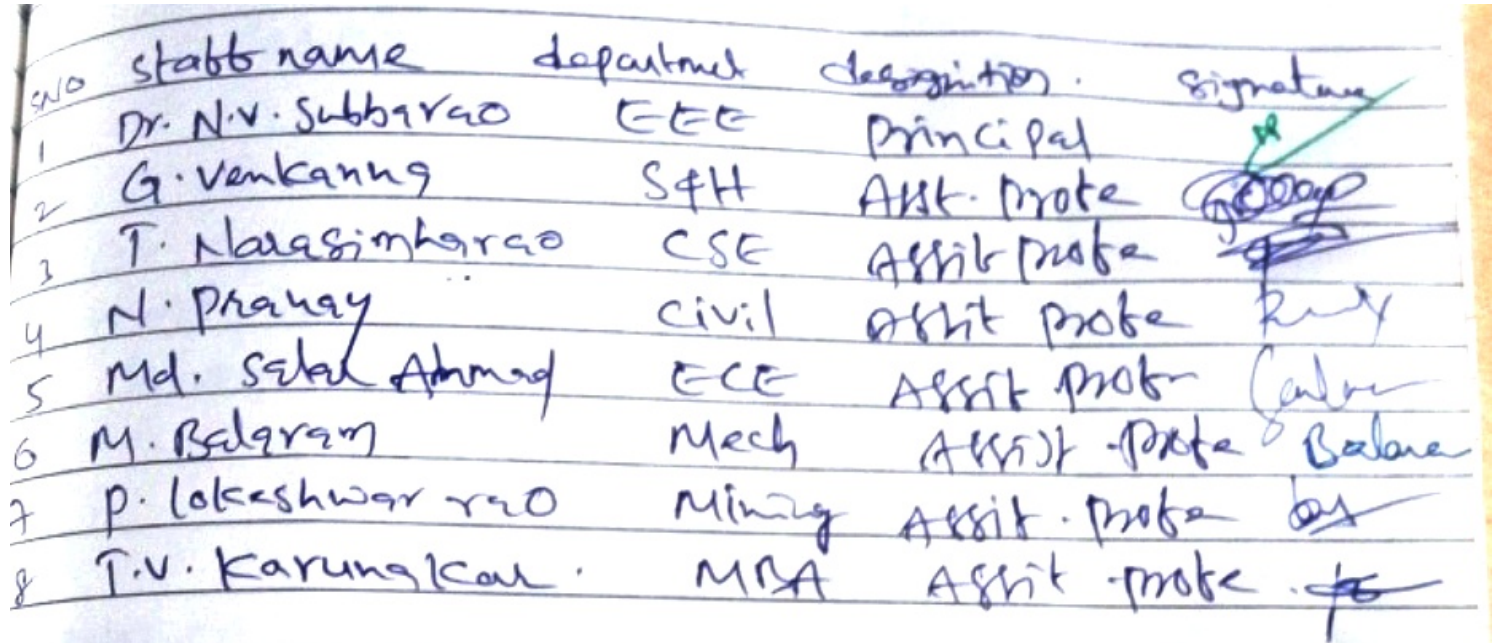 SNO staff name department designition. signature
1 Dr. N.V. Subbarao EEE Principal
2 G. Venkanna S&H Asst. Profe
3 T. Narasimharao CSE Assit profe
4 N. Pranay Civil Assit profe
5 Md. Salal Ahmad ECE Assit prof
6 M. Balaram Mech Assist .Profe Balara
7 P. lokeshwar rao Mining Assit. Profe
8 T.V. Karunakar. MBA Assit .profe